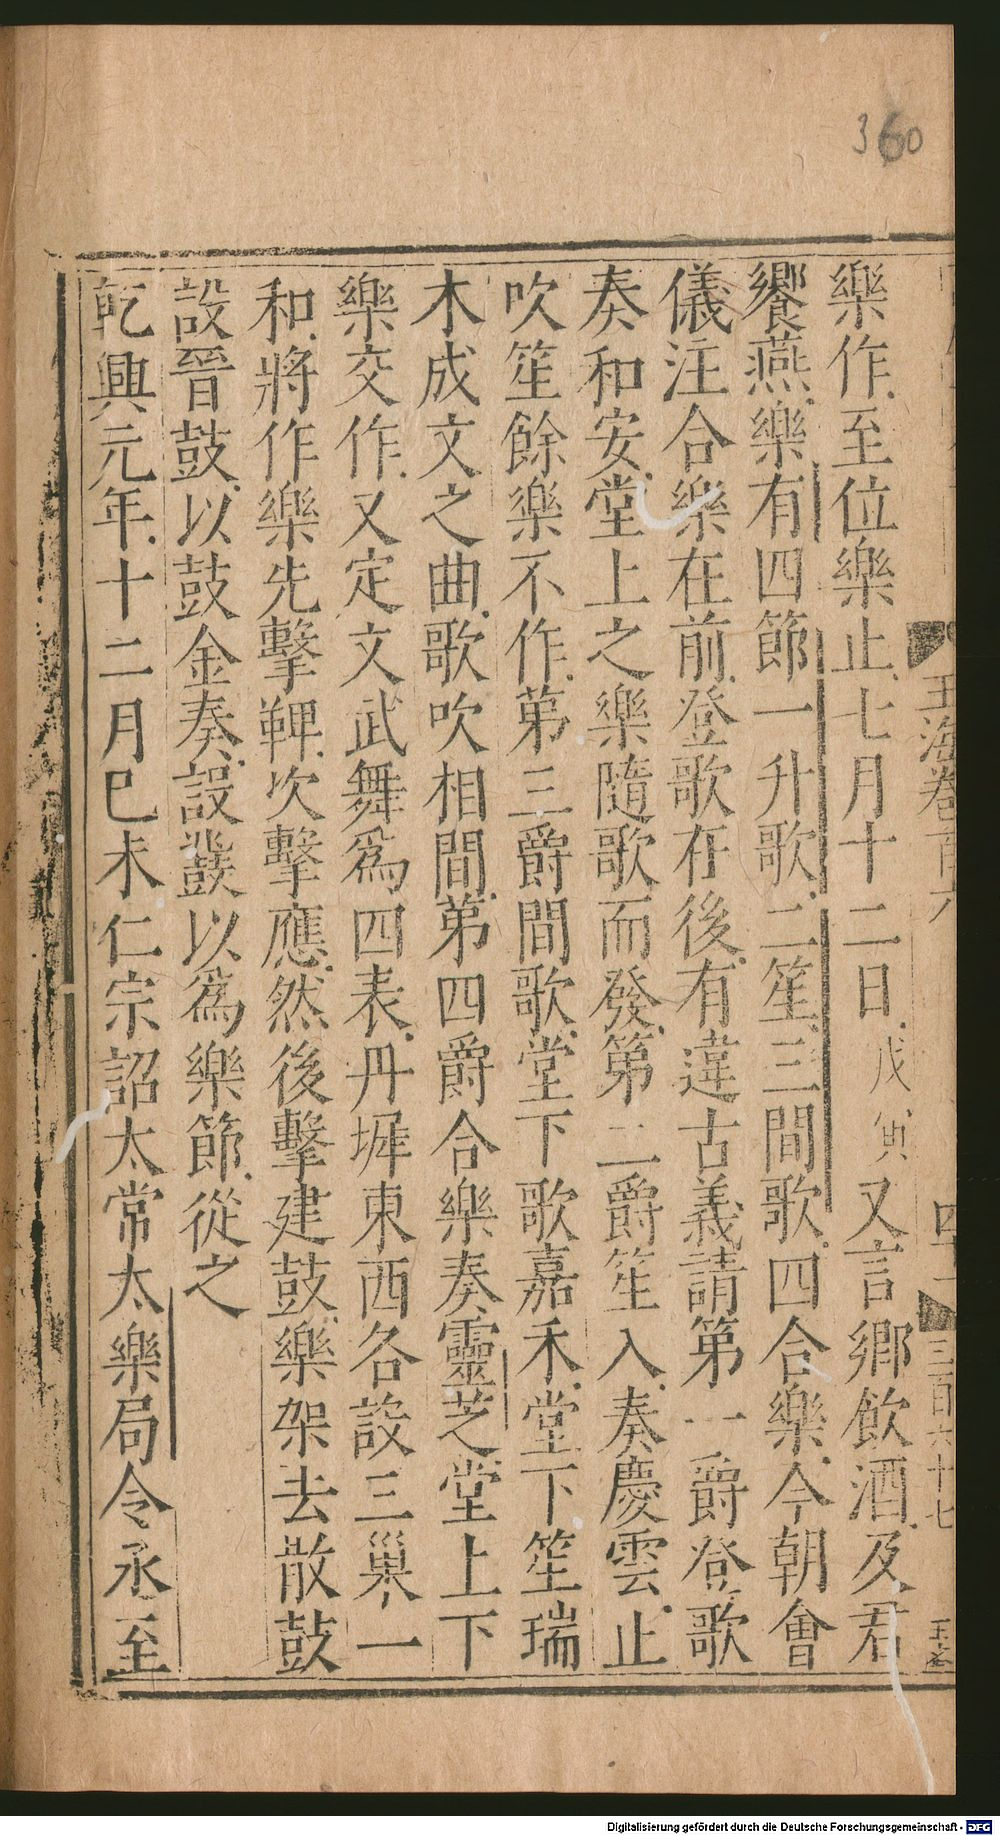 360
樂作至位樂止七月十二日戊寅又言鄉飲酒及君
饗燕樂有四節一升歌二笙三間歌四合樂今朝會
儀注合樂在前登歌在後有違古義請第一爵登歌
奏和安堂上之樂隨歌而發第二爵笙入奏慶雲止
吹笙餘樂不作第三爵間歌堂下歌嘉禾堂下笙瑞
木成文之曲歌吹相間第四爵合樂奏靈芝堂上下
樂交作又定文武舞爲四表丹墀東西各設三巢一
和將作樂先擊鞞次擊應然後擊建鼓樂架去散鼓
設晉鼓以鼓金奏設鼗以爲樂節從之
乾興元年十二月巳未仁宗詔太常太樂局令丞至
玉海卷百六
三百六十七
Digitalisierung gefördert durch die Deutsche Forschungsgemeinschaft - DFG